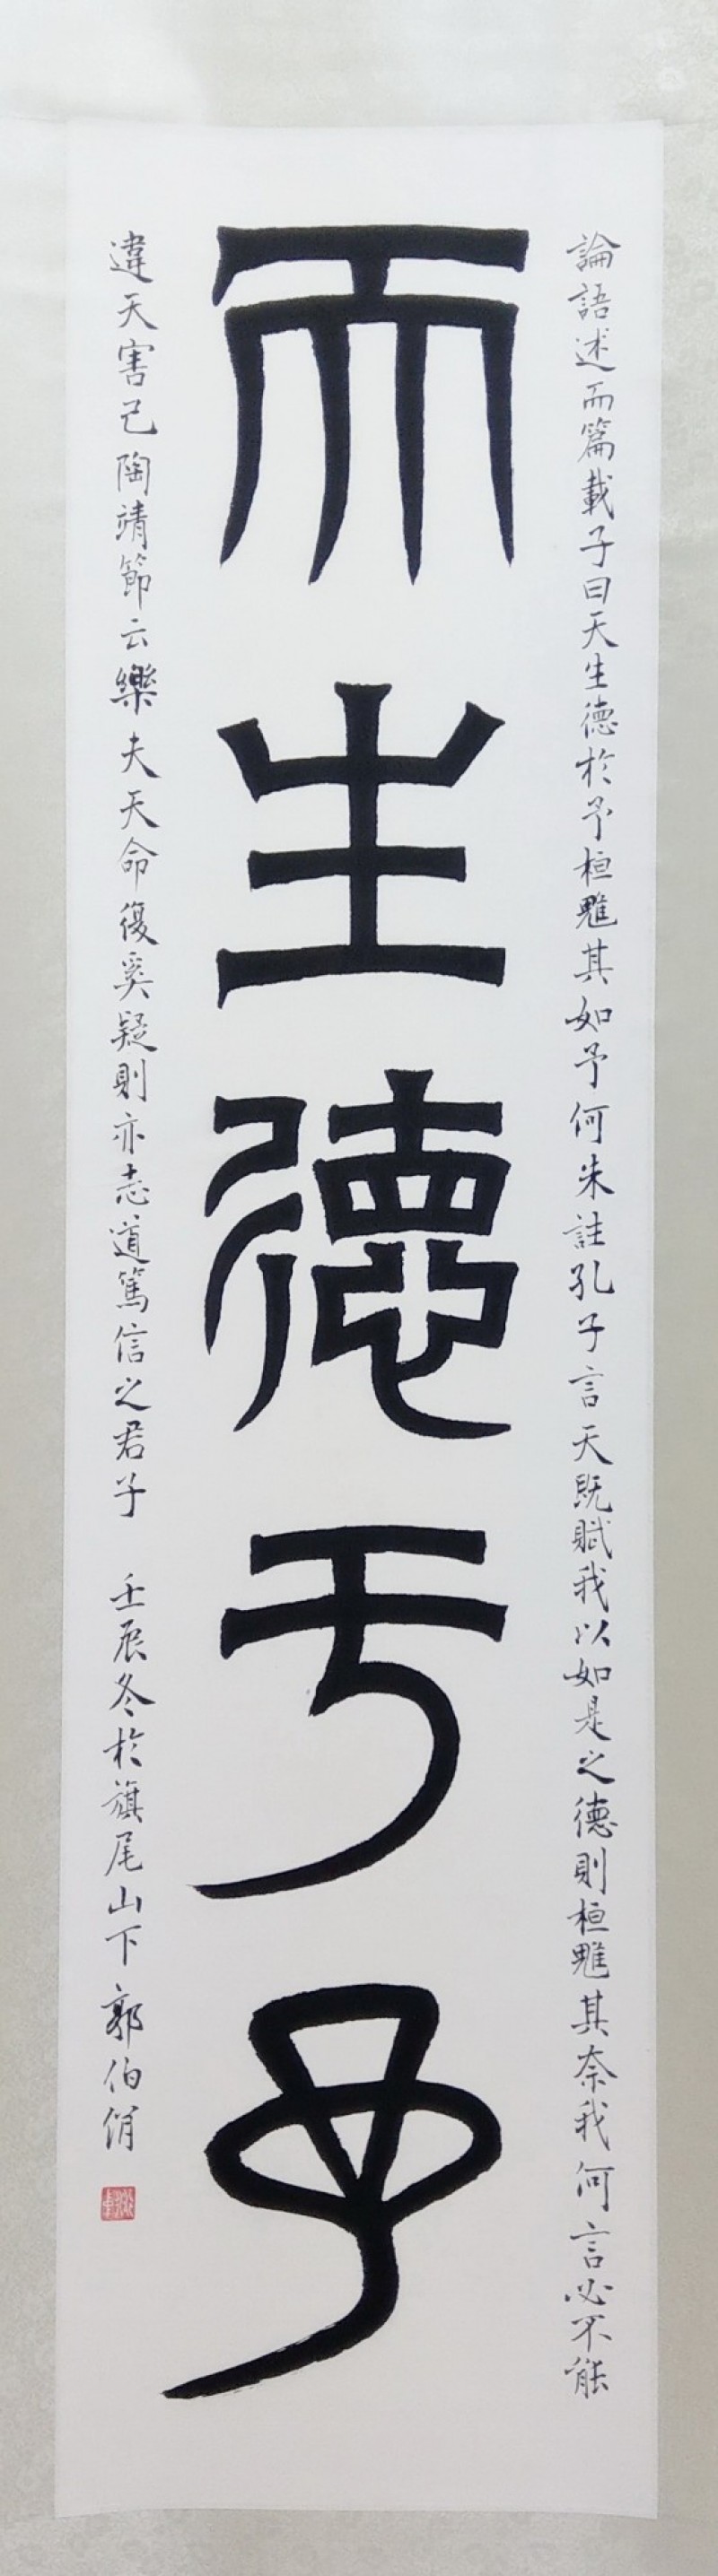 天生德于予
論語述而篇載子曰天生德於予桓魋其如予何朱註孔子言天既賦我以如是之德則桓魋其奈我何言必不能
違天害己陶靖節云樂夫天命復奚疑則亦志道篤信之君子 壬辰冬於旗尾山下郭伯佾